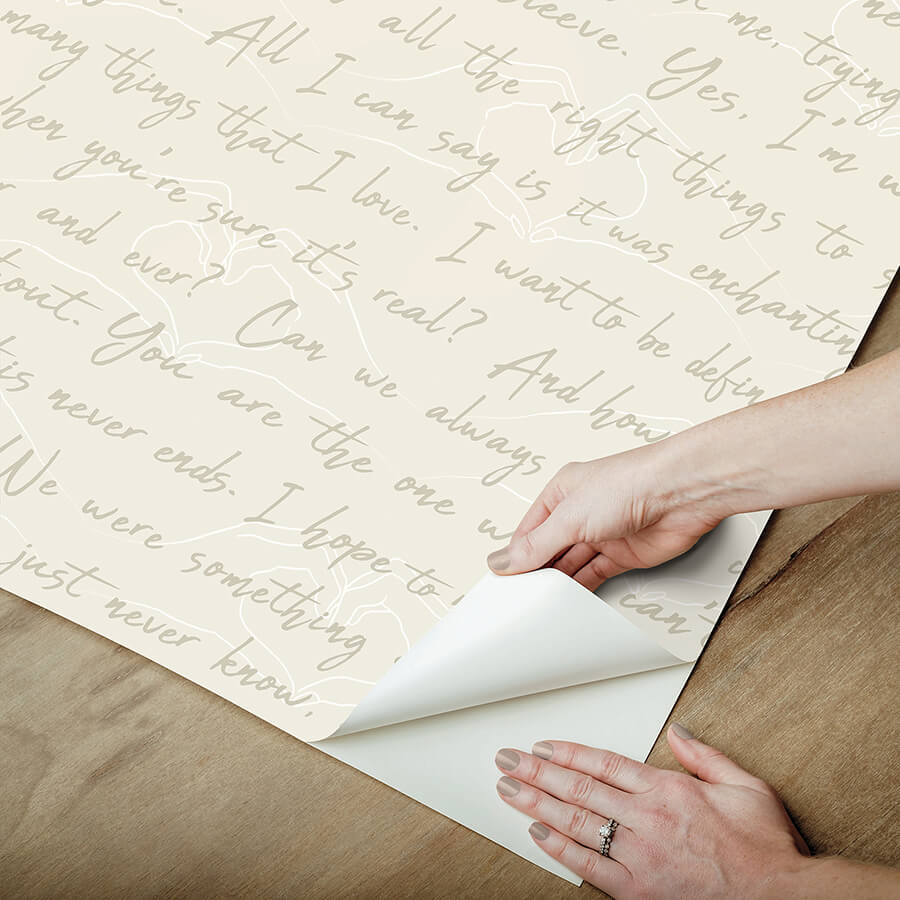 me, trying
sleeve. Yes, I'm w
all the right things to s
All I can say is it was enchanting
many things that I love. I want to be defin
when you're sure it's real? And how
and ever? Can we always
thout. You are the one w can'
is never ends. I hope to
We were something
just never know,